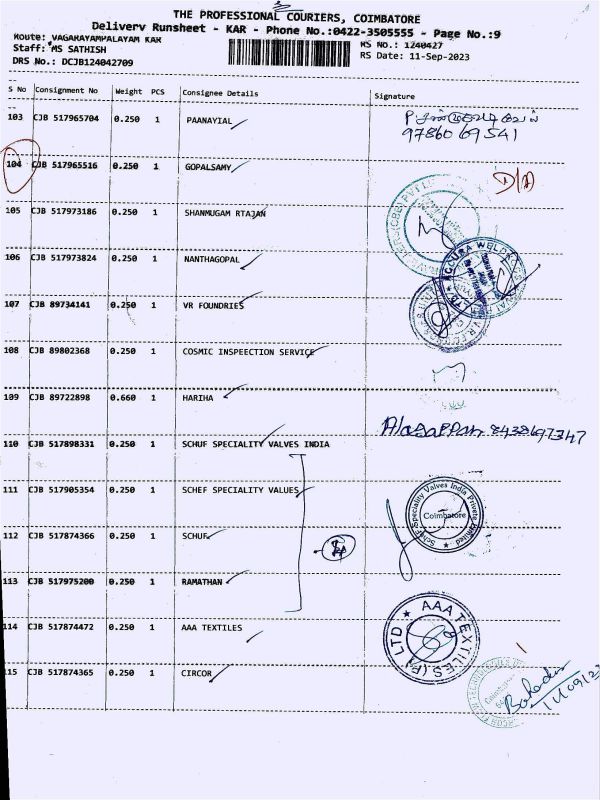 THE PROFESSIONAL COURIERS, COIMBATORE
Delivery Runsheet - KAR - Phone No.:0422-3505555 - Page No.:9
Route: VAGARAYAMPALAYAM KAR
RS No.: 1240427
Staff: MS SATHISH
RS Date: 11-Sep-2023
DRS No.: DCJB124042709
S No Consignment No Weight PCS Consignee Details Signature
103 CJB 517965704 0.250 1 PAANAYIAL
9786069541
104 CJB 517965516 0.250 1 GOPALSAMY D/A
105 CJB 517973186 0.250 1 SHANMUGAM RTAJAN
106 CJB 517973824 0.250 1 NANTHAGOPAL
107 CJB 89734141 0.250 1 VR FOUNDRIES
108 CJB 89802368 0.250 1 COSMIC INSPEECTION SERVICE
109 CJB 89722898 0.660 1 HARIHA
Alagappan 8438697347
110 CJB 517898331 0.250 1 SCHUF SPECIALITY VALVES INDIA
111 CJB 517905354 0.250 1 SCHEF SPECIALITY VALUES
Schuf Speciality Valves India Private Limited
Coimbatore
112 CJB 517874366 0.250 1 SCHUF
113 CJB 517975200 0.250 1 RAMATHAN
114 CJB 517874472 0.250 1 AAA TEXTILES
AAA TEXTILES (P) LTD
115 CJB 517874365 0.250 1 CIRCOR